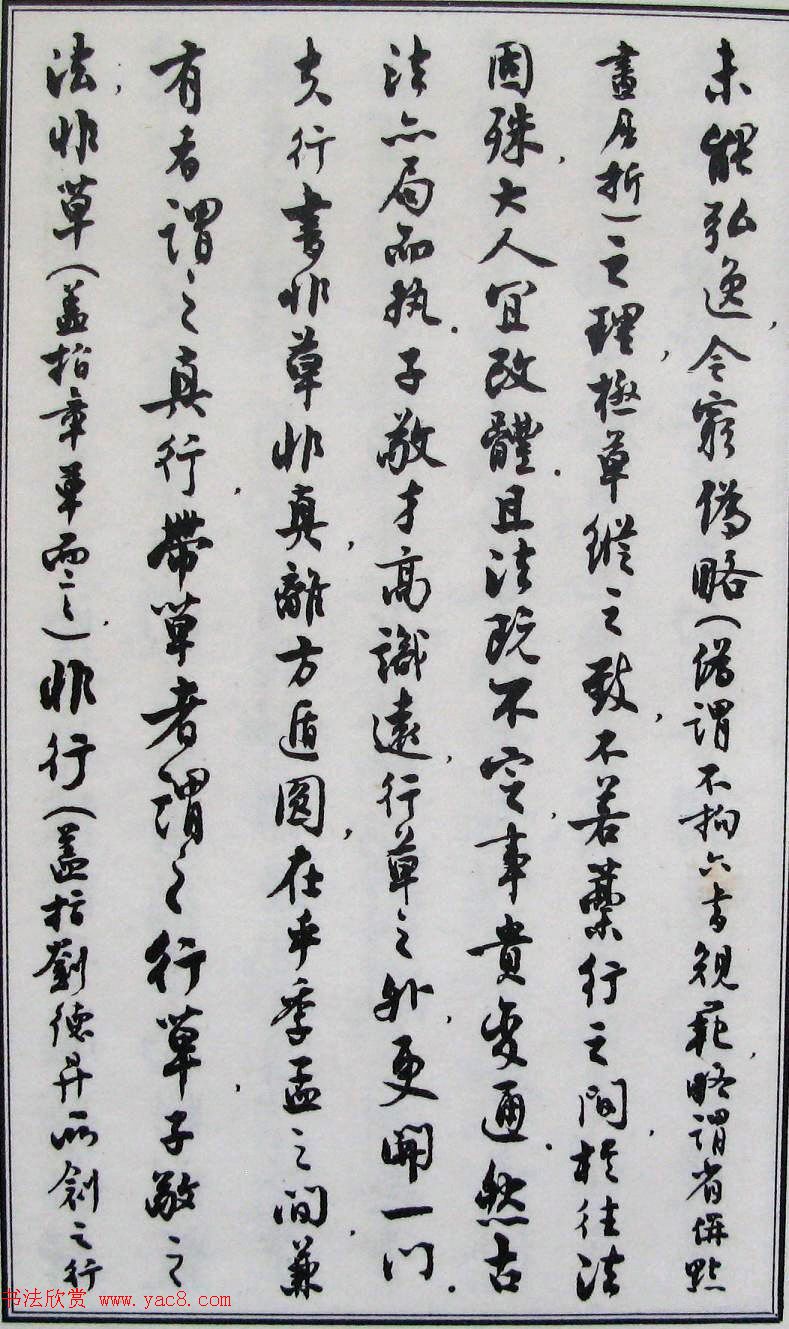 未能弘逸,今窮僞略(僞謂不拘六書規範,略謂省併點
畫屈折)之理,極草縱之致,不若藁行之間,於往法
固殊,大人宜改體.且法既不定,事貴變通.然古
法亦局而执.子敬才高識遠,行草之外,更開一门.
夫行書非草非真,離方遁圓,在乎季孟之间.兼
有者謂之真行,帶草者謂之行草,子敬之
法,非草(盖指章草而言)非行(盖指劉德昇所創之行
书法欣赏 www.yac8.com